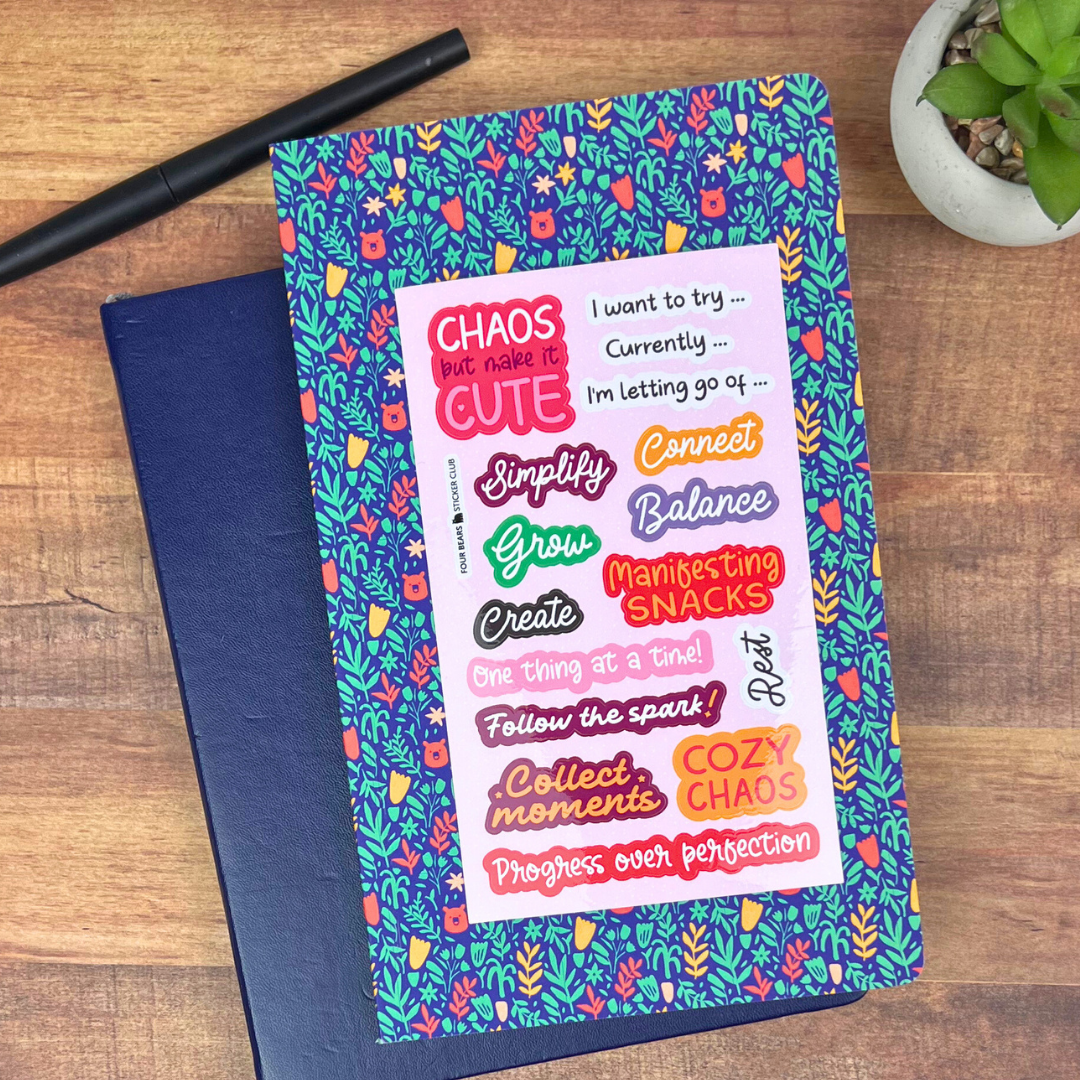 CHAOS
but make it
CUTE
I want to try ...
Currently ...
I'm letting go of ...
Simplify
Connect
FOUR BEARS STICKER CLUB
Balance
Grow
Manifesting
SNACKS
Create
One thing at a time!
Rest
Follow the spark!
Collect
moments
COZY
CHAOS
Progress over perfection